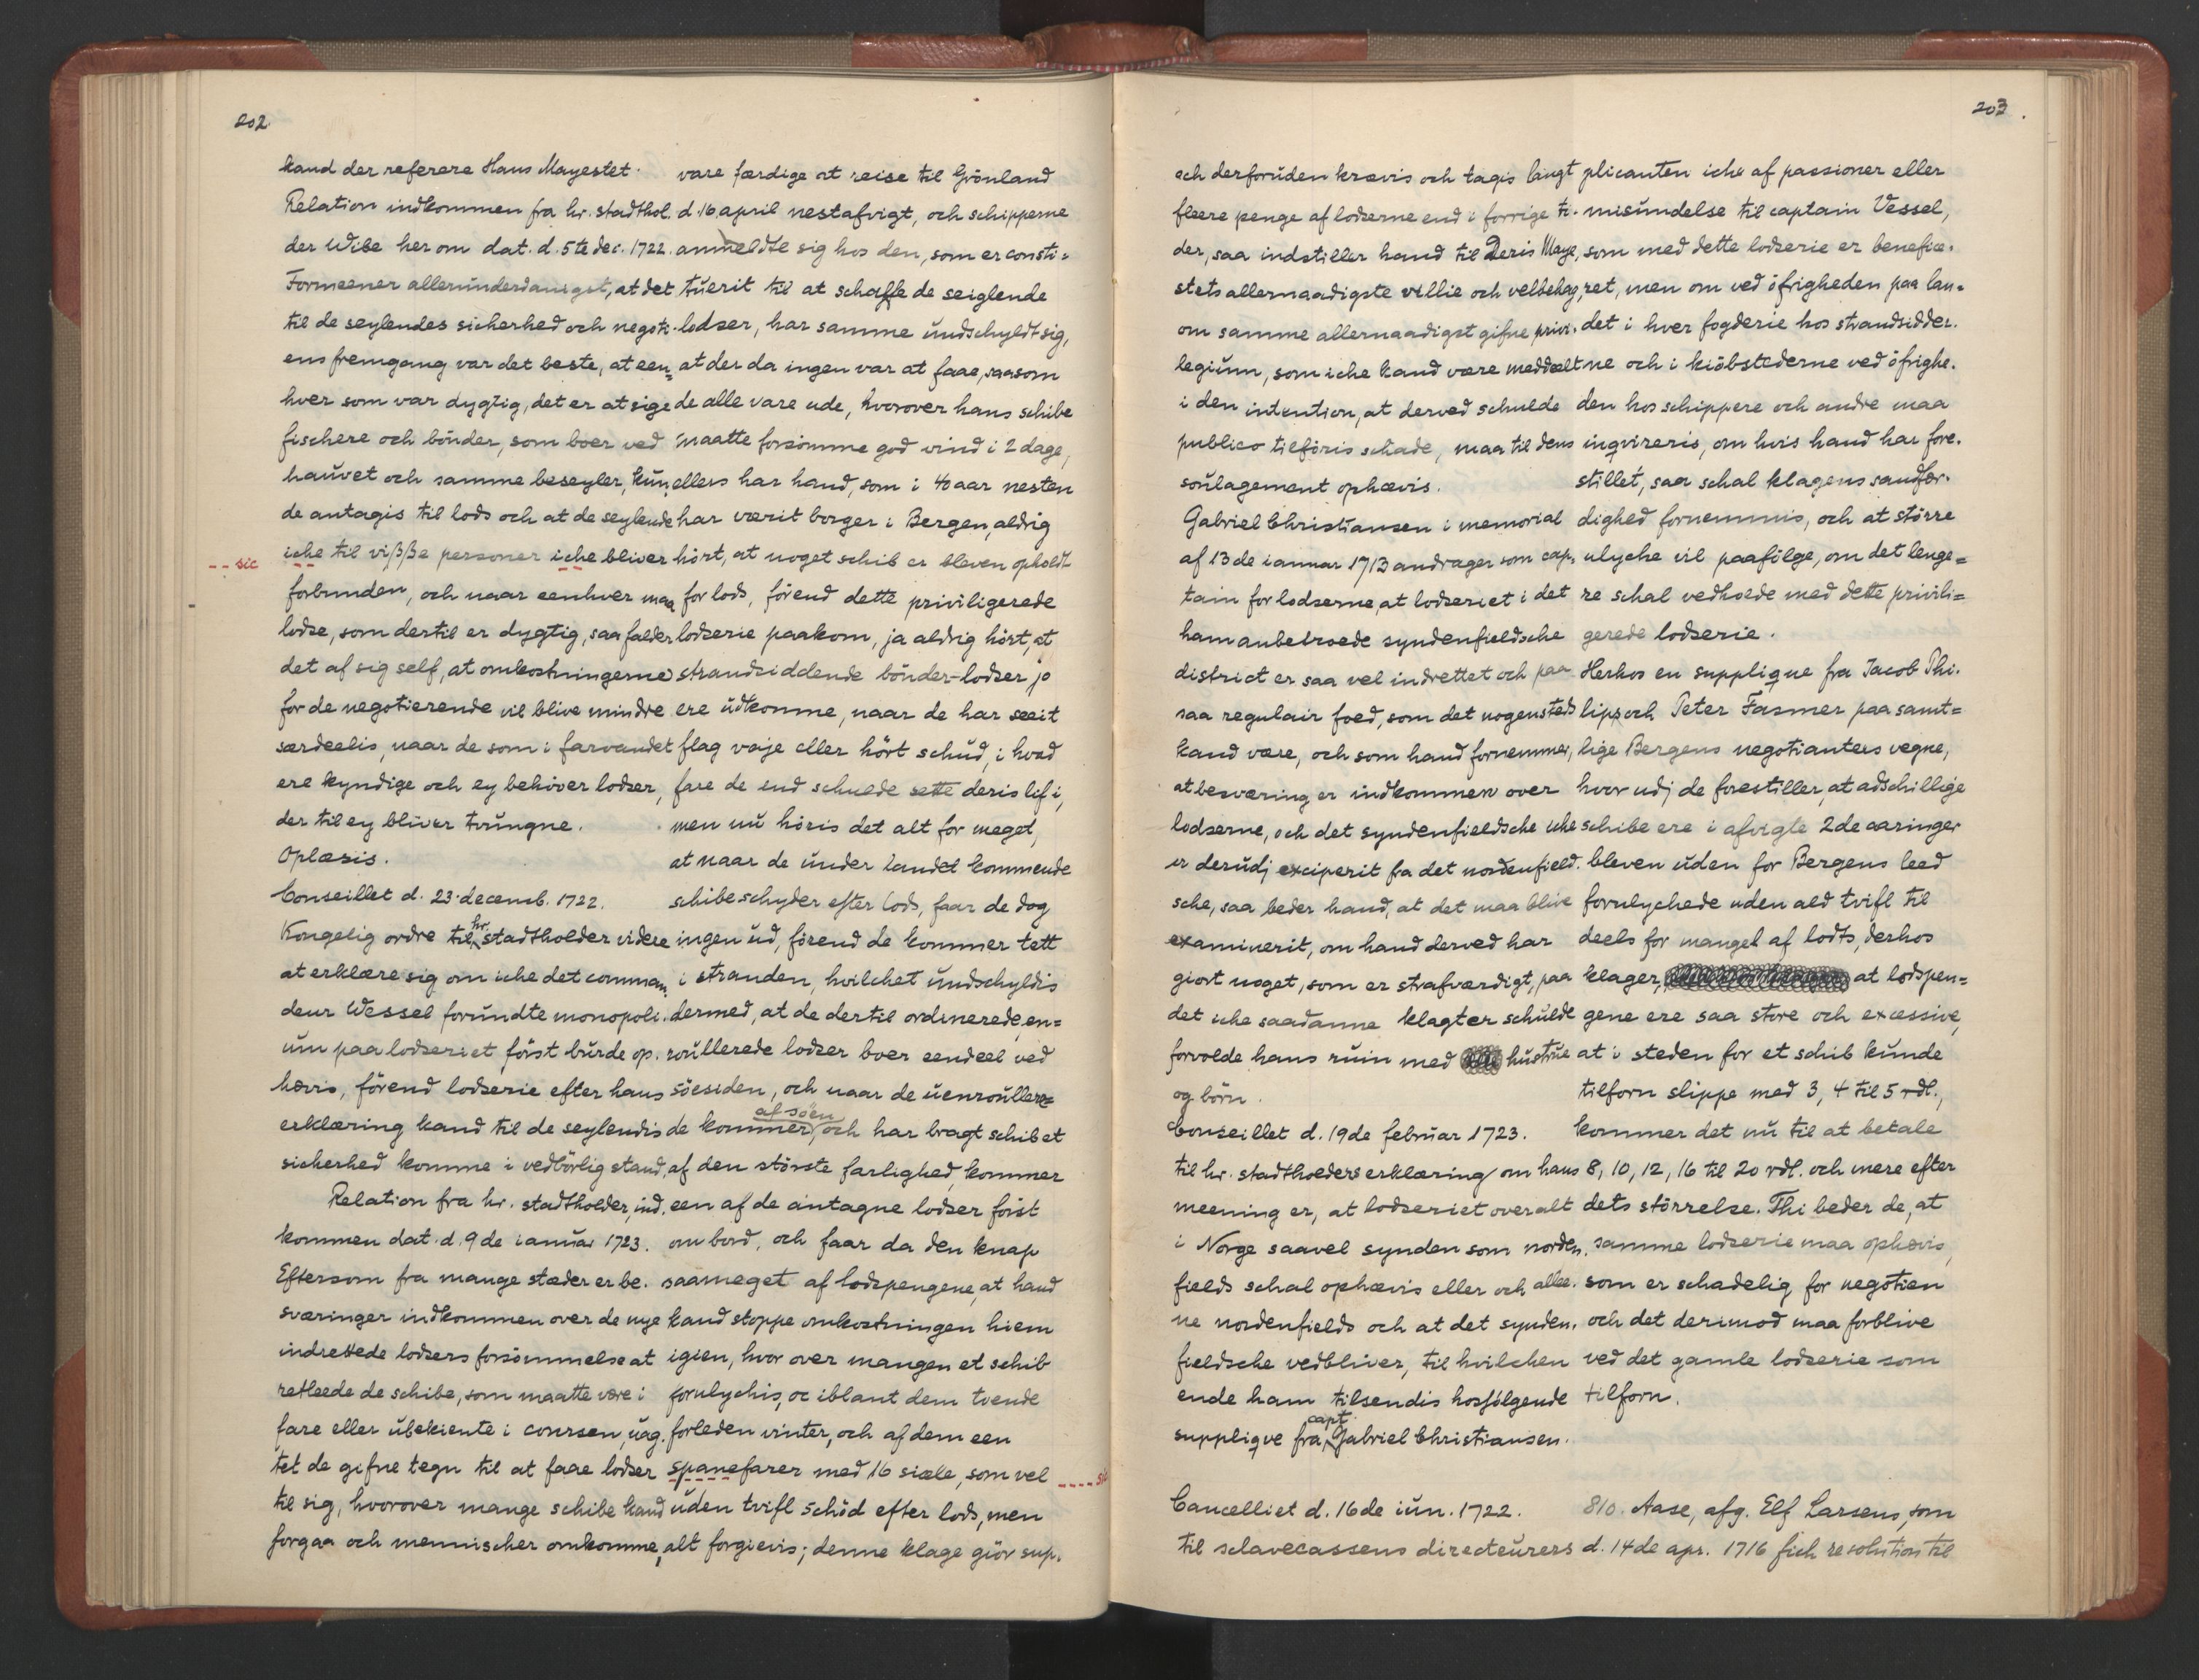 202
kand der referere Hans Mayestet.
Relation indkommen fra hr. stadthol.
der Wibe her om dat. d. 5te dec. 1722.
Formeener allerunderdanigst, at det
til de seylendes sicherhed och negoti-
ens fremgang var det beste, at een=
hver som var dygtig, det er at sige
fischere och bönder, som boer ved
hauvet och samme beseyler, kun=
de antagis til lods och at de seylende
--- sic iche til visse personer iche bliver
forbunden, och naar eenhver maa
lodse, som dertil er dygtig, saa falder
det af sig self, at omkostningerne
for de negotierende vil blive mindre
særdeelis, naar de som i farvandet
ere kyndige och ey behöver lodser,
der til ey bliver tvungne.
Oplæsis.
Conseillet d. 23 decemb. 1722.
Kongelig ordre til hr. stadtholder videre
at erklære sig om iche det comman-
deur Wessel forundte monopoli-
um paa lodseriet först burde op-
hævis, förend lodserie efter hans
erklæring kand til de seylendis
sicherhed komme i vedbörlig stand.
Relation fra hr. stadtholder, ind-
kommen dat. d. 9de ianuar 1723.
Eftersom fra mange stæder er be-
sværinger indkommen over de nye
indrettede lodsers forsömmelse at
retleede de schibe, som maatte være i
fare eller ubekiente i coursen, uag-
tet de gifne tegn til at faae lodser
til sig, hvorover mange schibe kand
forgaa och mennischer omkomme,
vare færdige at reise til Grönland
d. 16 april nestafvigt, och schipperne
anmeldte sig hos den, som er consti=
tuerit til at schaffe de seiglende
lodser, har samme undschyldt sig,
at der da ingen var at faae, saasom
de alle vare ude, hvorover hans schibe
maatte forsömme god vind i 2 dage,
ellers har hand, som i 40 aar nesten
har værit borger i Bergen, aldrig
hört, at noget schib er bleven opholdt
for lods, förend dette priviligerede
lodserie paakom, ja aldrig hört, at
strandsiddende bönder-lodser jo
ere udkomme, naar de har seeit
flag vaje eller hört schud, i hvad
fare de end schulde sette deris lif i,
men nu höris det alt for meget,
at naar de under landet kommende
schibe schyder efter lods, faar de dog
ingen ud, förend de kommer tett
i stranden, hvilchet undschyldis
dermed, at de dertil ordinerede, en=
roullerede lodser boer eendeel ved
söesiden, och naar de uenroullere=
de kommer af söen, och har bragt schibet
af den störste farlighed, kommer
een af de antagne lodser först
om bord, och faar da den knap
saameget af lodspengene, at hand
kand stoppe omkostningen hiem
igien, hvor over mangen et schib
forulychis, oc iblant dem tvende
forleden vinter, och af dem een
spanefarer med 16 siæle, som vel ----- sic
uden tvifl schöd efter lods, men
alt forgievis; denne klage giör sup-
203.
och derforuden krævis och tagis langt
fleere penge af lodserne end i forrige ti-
der, saa indstiller hand til Deris Maye-
stets allernaadigste villie och velbehag,
om samme allernaadigst gifne privi-
legium, som iche kand være meddeelt
i den intention, at derved schulde
publico tilföris schade, maa til dens
soulagement ophævis.
Gabriel Christiansen i memorial
af 13de ianuar 1713 andrager som cap-
tain for lodserne, at lodseriet i det
ham anbetroede syndenfieldsche
district er saa vel indrettet och paa
saa regulair foed, som det nogensteds
kand være, och som hand fornemmer,
at besværing er indkommen over
lodserne, och det syndenfieldsche iche
er derudj exciperit fra det nordenfield-
sche, saa beder hand, at det maa blive
examinerit, om hand derved har
giort noget, som er strafværdigt, paa
det iche saadanne klagter schulde
forvolde hans ruin med hustrue
og börn.
Conseillet d. 19de februar 1723.
Til hr. stadtholders erklæring om hans
meening er, at lodseriet overalt
i Norge saavel synden som norden-
fields schal ophævis eller och allee-
ne nordenfields och at det synden-
fieldsche vedbliver, til hvilchen
ende ham tilsendis hosfölgende
suppliqve fra capt. Gabriel Christiansen.
plicanten iche af passioner eller
misundelse til captain Vessel,
som med dette lodserie er benefice-
ret, men om ved öfrigheden paa lan=
det i hver fogderie hos strandsidder-
ne och i kiöbstederne ved öfrighe-
den hos schippere och andre maa
inqvireris, om hvis hand har fore-
stillet, saa schal klagens sandfær-
dighed fornemmis, och at större
ulyche vil paafölge, om det lenge=
re schal vedholde med dette privili=
gerede lodserie.
Herhos en supplique fra Jacob Thi-
lips och Peter Fasmer paa samt=
lige Bergens negotianters vegne,
hvor udj de forestiller, at adschillige
schibe ere i afvigte 2de aaringer
bleven uden for Bergens leed
forulychede uden ald tvifl til
deels for mangel af lodts, derhos
klager, at lodspen=
gene ere saa store och excessive,
at i steden for et schib kunde
tilforn slippe med 3, 4 til 5 rdl.,
kommer det nu til at betale
8, 10, 12, 16 til 20 rdl. och mere efter
dets störrelse. Thi beder de, at
samme lodserie maa ophævis,
som er schadelig for negotien
och det derimod maa forblive
ved det gamle lodserie som
tilforn.
Cancelliet d. 16de iun. 1722.
Til sclavecassens directeurers
810. Aase, afg. Elf Larsens, som
d. 14de apr. 1716 fich resolution til